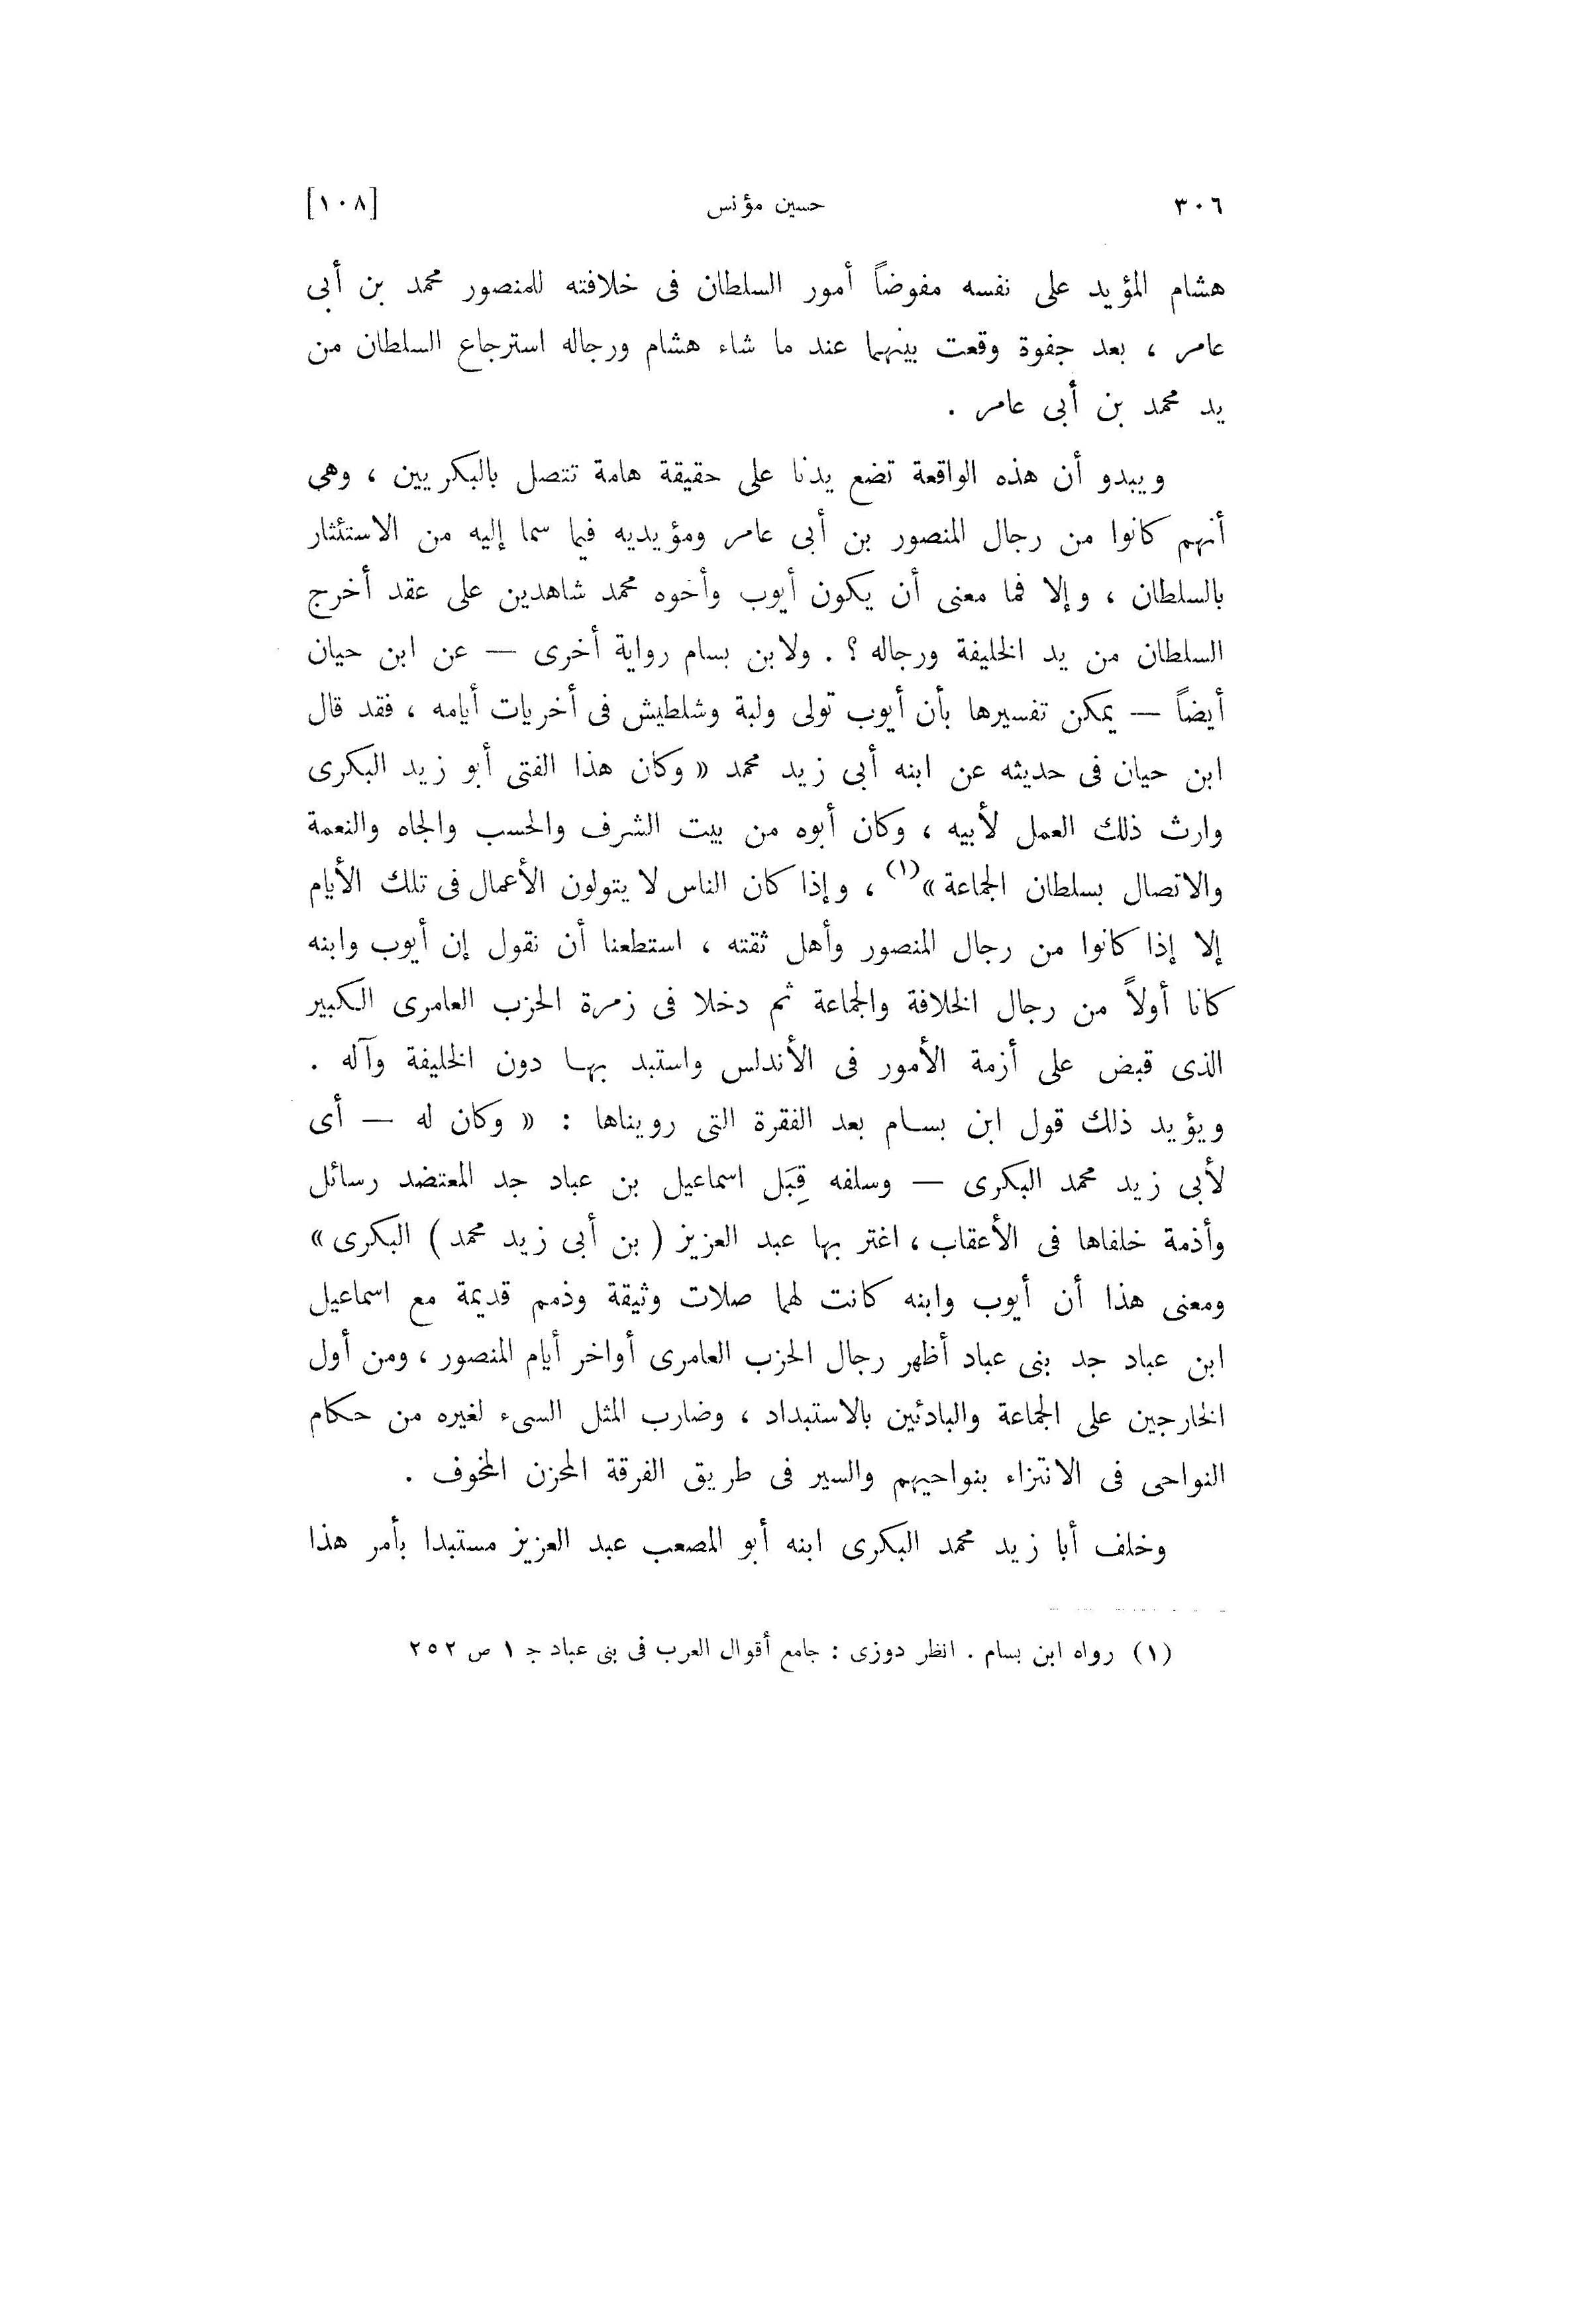 ٣٠٦ حسين مؤنس [١٠٨]
هشام المؤيد على نفسه مفوضاً أمور السلطان فى خلافته للمنصور محمد بن أبى
عامر ، بعد جفوة وقعت بينهما عند ما شاء هشام ورجاله استرجاع السلطان من
يد محمد بن أبى عامر .
ويبدو أن هذه الواقعة تضع يدنا على حقيقة هامة تتصل بالبكريين ، وهى
أنهم كانوا من رجال المنصور بن أبى عامر ومؤيديه فيما سما إليه من الاستئثار
بالسلطان ، وإلا فما معنى أن يكون أيوب وأخوه محمد شاهدين على عقد أخرج
السلطان من يد الخليفة ورجاله ؟ . ولابن بسام رواية أخرى — عن ابن حيان
أيضاً — يمكن تفسيرها بأن أيوب تولى ولبة وشلطيش فى أخريات أيامه ، فقد قال
ابن حيان فى حديثه عن ابنه أبى زيد محمد « وكان هذا الفتى أبو زيد البكرى
وارث ذلك العمل لأبيه ، وكان أبوه من بيت الشرف والحسب والجاه والنعمة
والاتصال بسلطان الجماعة »(١) ، وإذا كان الناس لا يتولون الأعمال فى تلك الأيام
إلا إذا كانوا من رجال المنصور وأهل ثقته ، استطعنا أن نقول إن أيوب وابنه
كانا أولاً من رجال الخلافة والجماعة ثم دخلا فى زمرة الحزب العامرى الكبير
الذى قبض على أزمة الأمور فى الأندلس واستبد بها دون الخليفة وآله .
ويؤيد ذلك قول ابن بسام بعد الفقرة التى رويناها : « وكان له — أى
لأبى زيد محمد البكرى — وسلفه قِبَل اسماعيل بن عباد جد المعتضد رسائل
وأذمة خلفاها فى الأعقاب ، اغتر بها عبد العزيز ( بن أبى زيد محمد ) البكرى »
ومعنى هذا أن أيوب وابنه كانت لهما صلات وثيقة وذمم قديمة مع اسماعيل
ابن عباد جد بنى عباد أظهر رجال الحزب العامرى أواخر أيام المنصور ، ومن أول
الخارجين على الجماعة والبادئين بالاستبداد ، وضارب المثل السىء لغيره من حكام
النواحى فى الانتزاء بنواحيهم والسير فى طريق الفرقة المحزن المخوف .
وخلف أبا زيد محمد البكرى ابنه أبو المصعب عبد العزيز مستبدا بأمر هذا
(١) رواه ابن بسام . انظر دوزى : جامع أقوال العرب فى بنى عباد ج ١ ص ٢٥٢